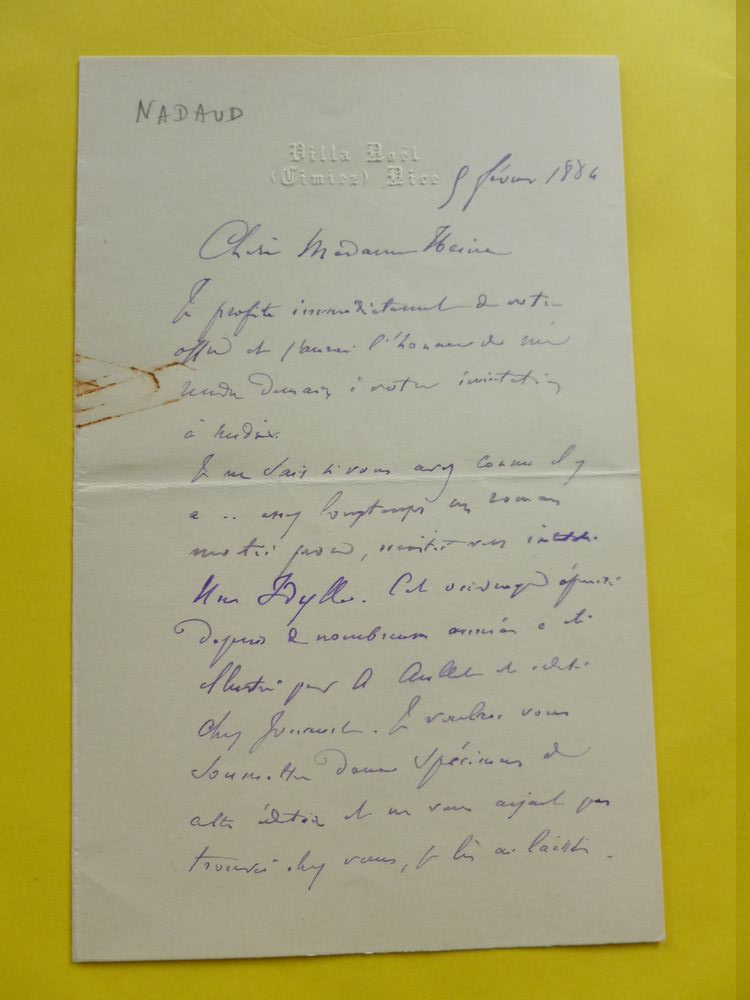 NADAUD
Villa Noël
(Cimiez) Nice
9 février 1886
Chère Madame
Je profite immédiatement de votre
offre et j'aurai l'honneur de me
rendre demain à votre invitation
à midi.
Je ne sais si vous avez connu il y
a .. assez longtemps un roman
par moi,
Une Idylle. Cet ouvrage épuisé
depuis de nombreuses années a été
illustré par A et édité
chez Jouaust. Je voulais vous
soumettre deux spécimens de
cette édition et ne vous ayant pas
trouvée chez vous, je les ai laissés.